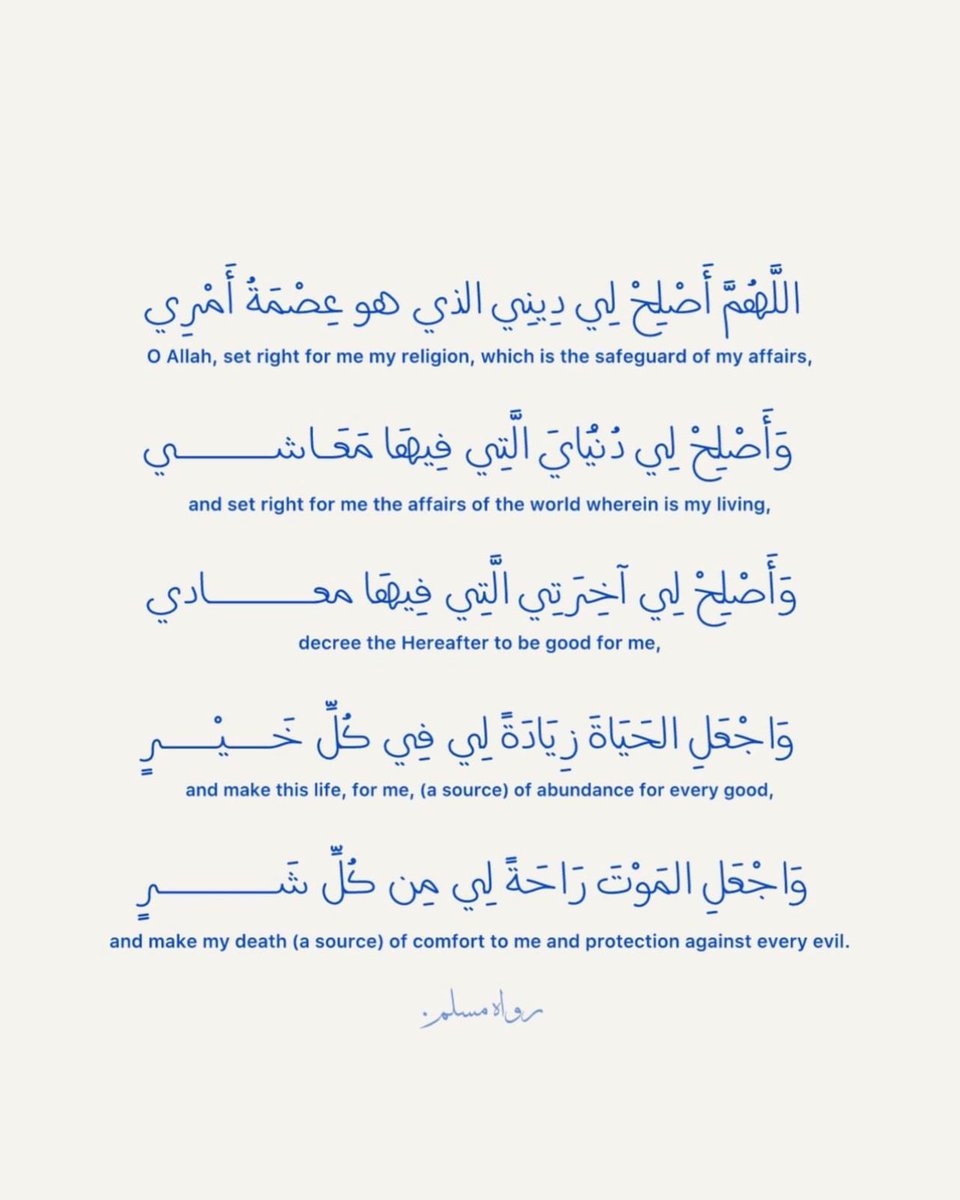 اللَّهُمَّ أَصْلِحْ لِي دِينِي الذي هو عِصْمَةُ أَمْرِي
O Allah, set right for me my religion, which is the safeguard of my affairs,
وَأَصْلِحْ لِي دُنْيَايَ الَّتِي فِيهَا مَعَاشـــــــي
and set right for me the affairs of the world wherein is my living,
وَأَصْلِحْ لِي آخِرَتِي الَّتِي فِيهَا معـــــــادي
decree the Hereafter to be good for me,
وَاجْعَلِ الحَيَاةَ زِيَادَةً لِي فِي كُلِّ خَـــيْـــرٍ
and make this life, for me, (a source) of abundance for every good,
وَاجْعَلِ المَوْتَ رَاحَةً لِي مِن كُلِّ شَـــــــرٍ
and make my death (a source) of comfort to me and protection against every evil.
رواه مسلم.